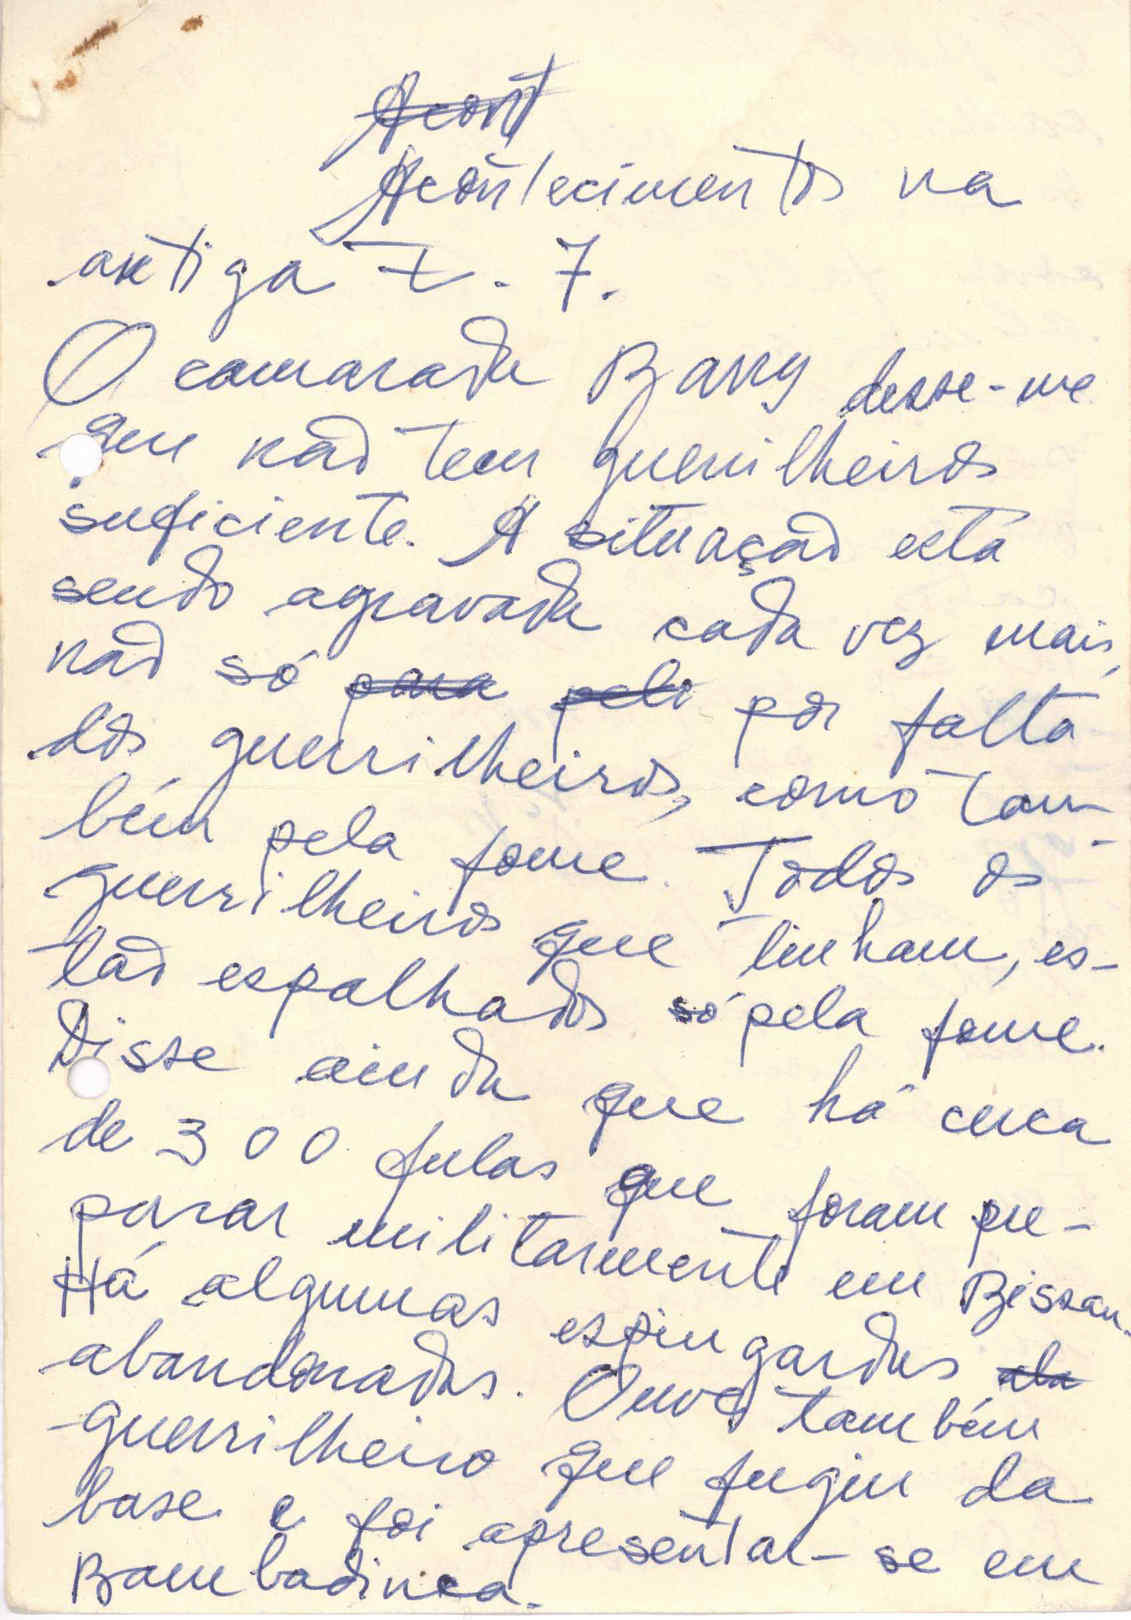 Acont
Acontecimentos na
antiga Z. 7.
O camarada Barry desse-me
que não tem guerrilheiros
suficiente. A situação está
sendo agravada cada vez mais,
não só para pelo por falta
dos guerrilheiros, como tam-
bém pela fome. Todos os
guerrilheiros que tinham, es-
tão espalhados só pela fome.
Disse ainda que há cerca
de 300 fulas que foram pre-
parar militarmente em Bissau.
Há algumas espingardas
abandonadas. Ouve também
guerrilheiro que fugiu da
base e foi apresentar-se em
Bambadinca.